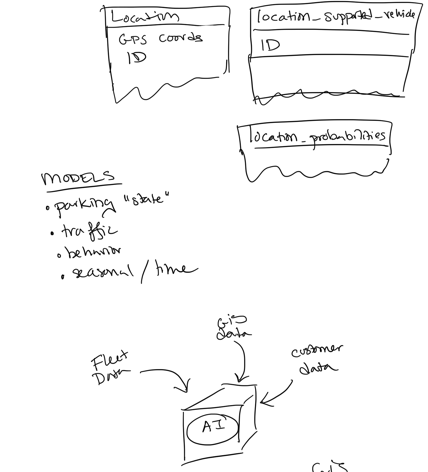 Location
GPS coords
ID
location_supported_vehicle
ID
location_probabilities
MODELS
• parking "state"
• traffic
• behavior
• seasonal / time
GIS
data
Fleet
Data
customer
data
AI
GIS